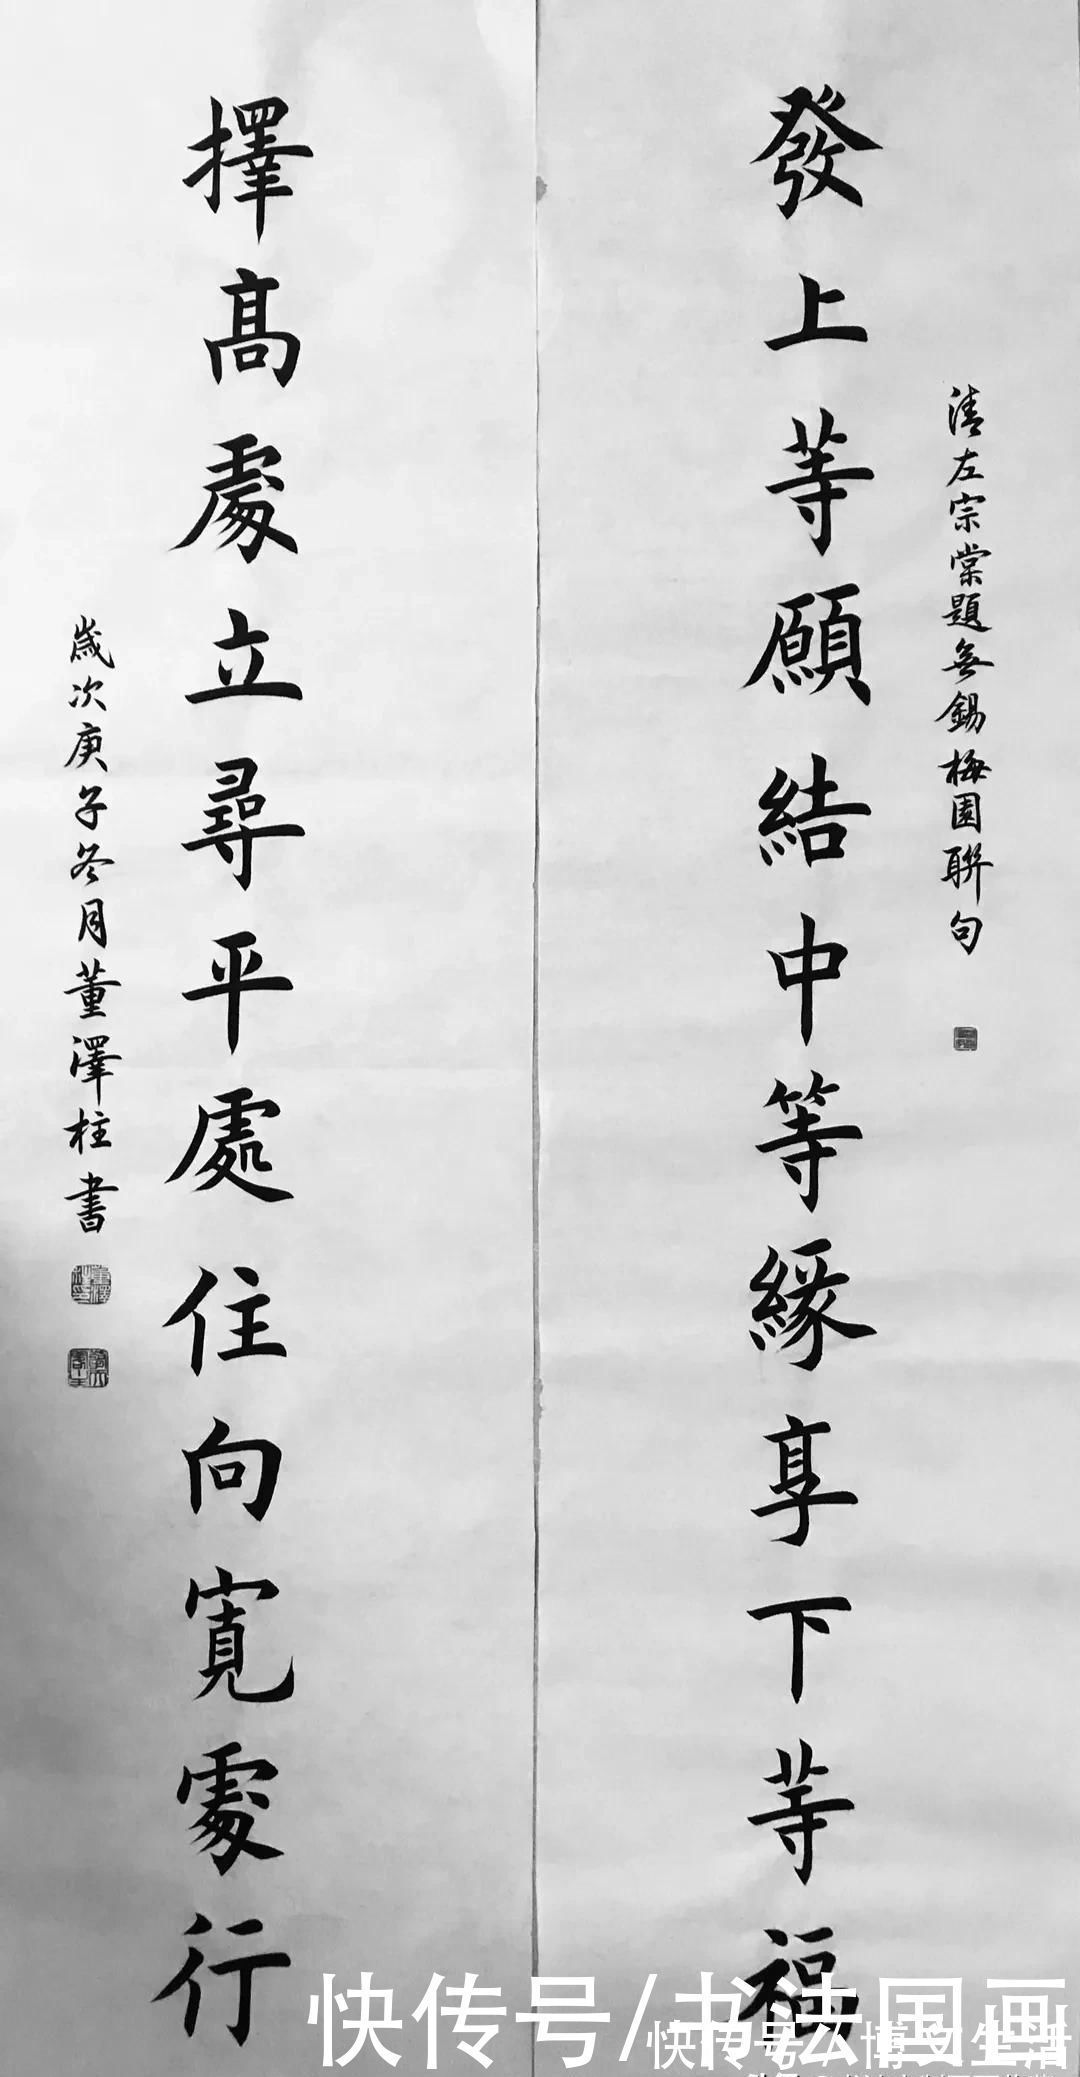 清左宗棠題無錫梅園聯句
發上等願結中等緣享下等福
擇高處立尋平處住向寬處行
歲次庚子冬月董澤柱書
快传号/书法国画
快传号/博文生活